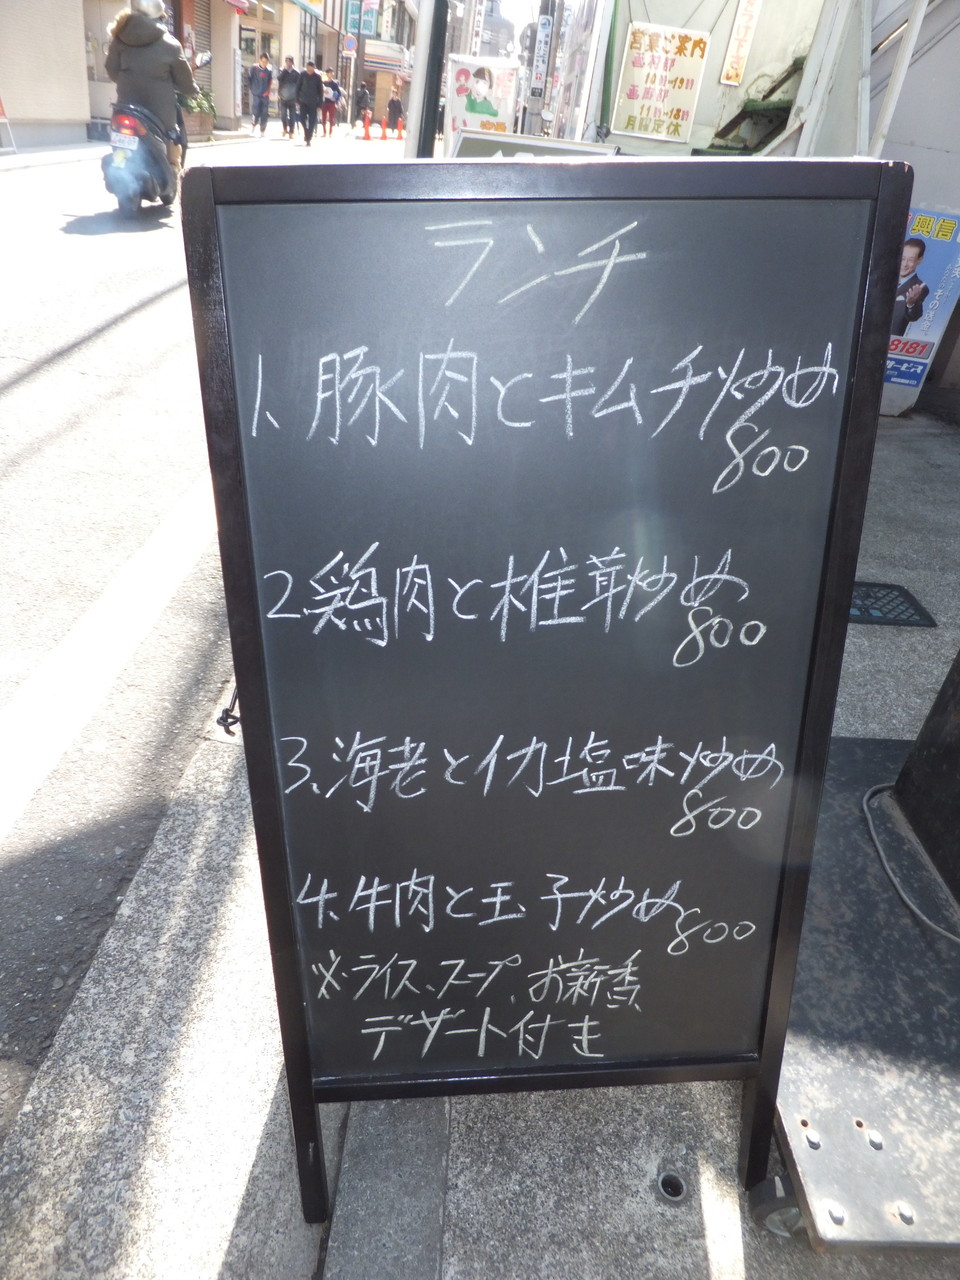 ランチ
1、豚肉とキムチ炒め
800
2、鶏肉と椎茸炒め
800
3、海老とイカ塩味炒め
800
4、牛肉と玉子炒め
800
※ライス、スープ、お新香
デザート付き
月曜定休
興信
8181